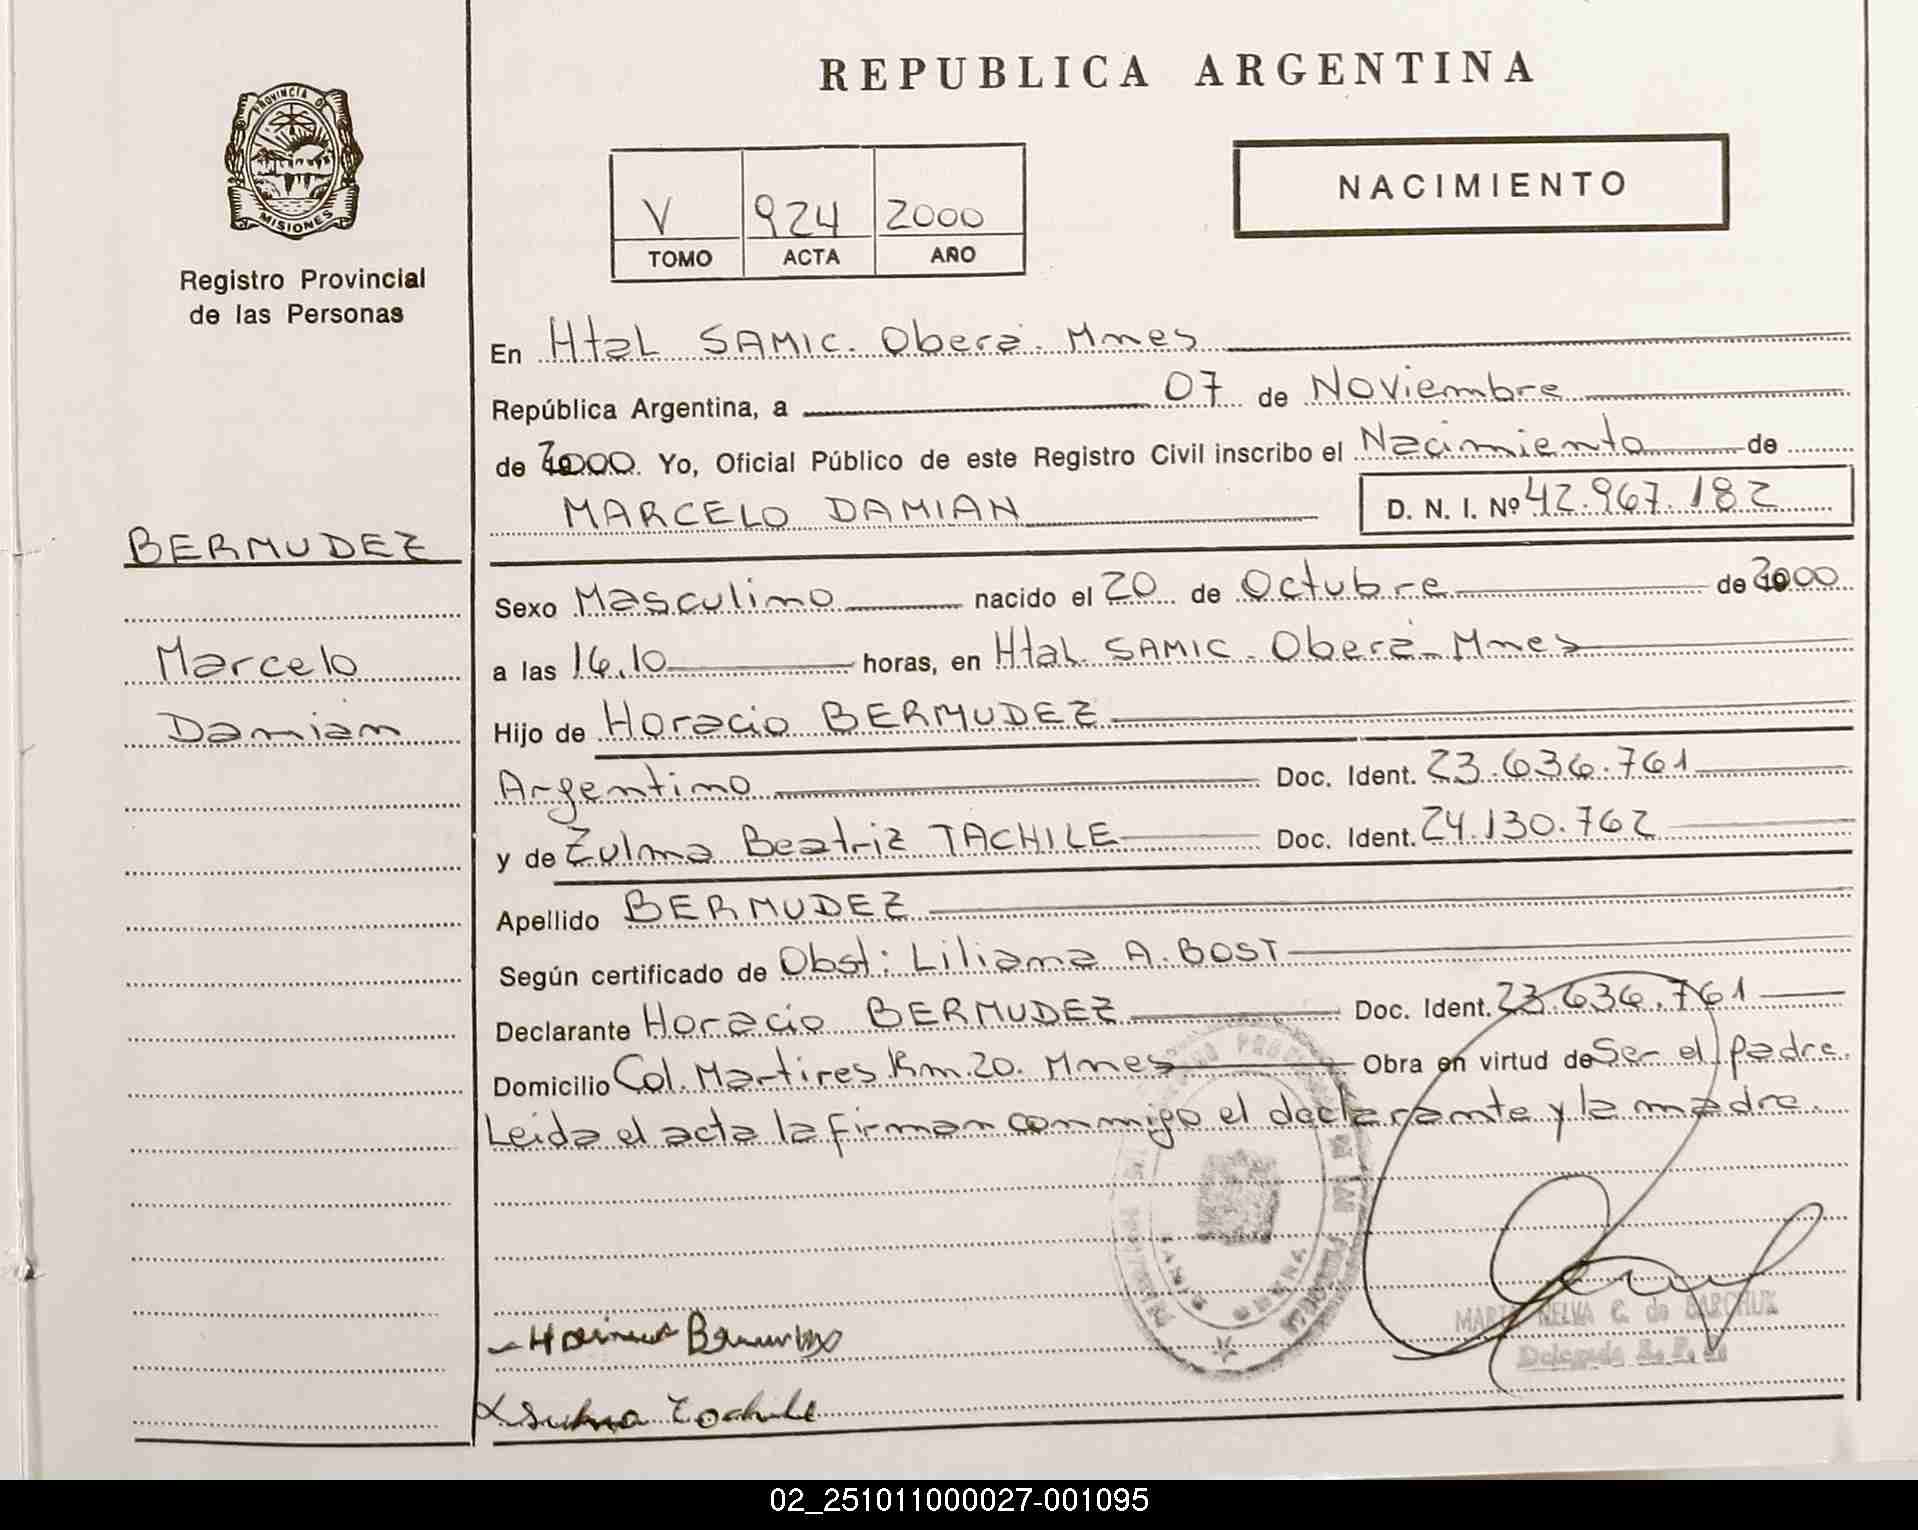 REPUBLICA ARGENTINA
PROVINCIA D
MISIONES
Registro Provincial
de las Personas
V 924 2000
TOMO ACTA AÑO
NACIMIENTO
En Htal SAMIC. Oberá. Mnes
República Argentina, a 07 de Noviembre
de 2000. Yo, Oficial Público de este Registro Civil inscribo el Nacimiento de
MARCELO DAMIAN D. N. I. Nº 42.967.182
BERMUDEZ
Marcelo
Damián
Sexo Masculino nacido el 20 de Octubre de 2000
a las 14.10 horas, en Htal. SAMIC. Oberá. Mnes
Hijo de Horacio BERMUDEZ
Argentino Doc. Ident. 23.636.761
y de Zulma Beatriz TACHILE Doc. Ident. 24.130.762
Apellido BERMUDEZ
Según certificado de Obst: Liliana A. BOST
Declarante Horacio BERMUDEZ Doc. Ident. 23.636.761
Domicilio Col. Martires Km. 20. Mnes Obra en virtud de Ser el padre.
Leida el acta la firman conmigo el declarante y la madre.
MARIA NELVA C. de BARCHUK
Delegada R. P. P.
02_251011000027-001095